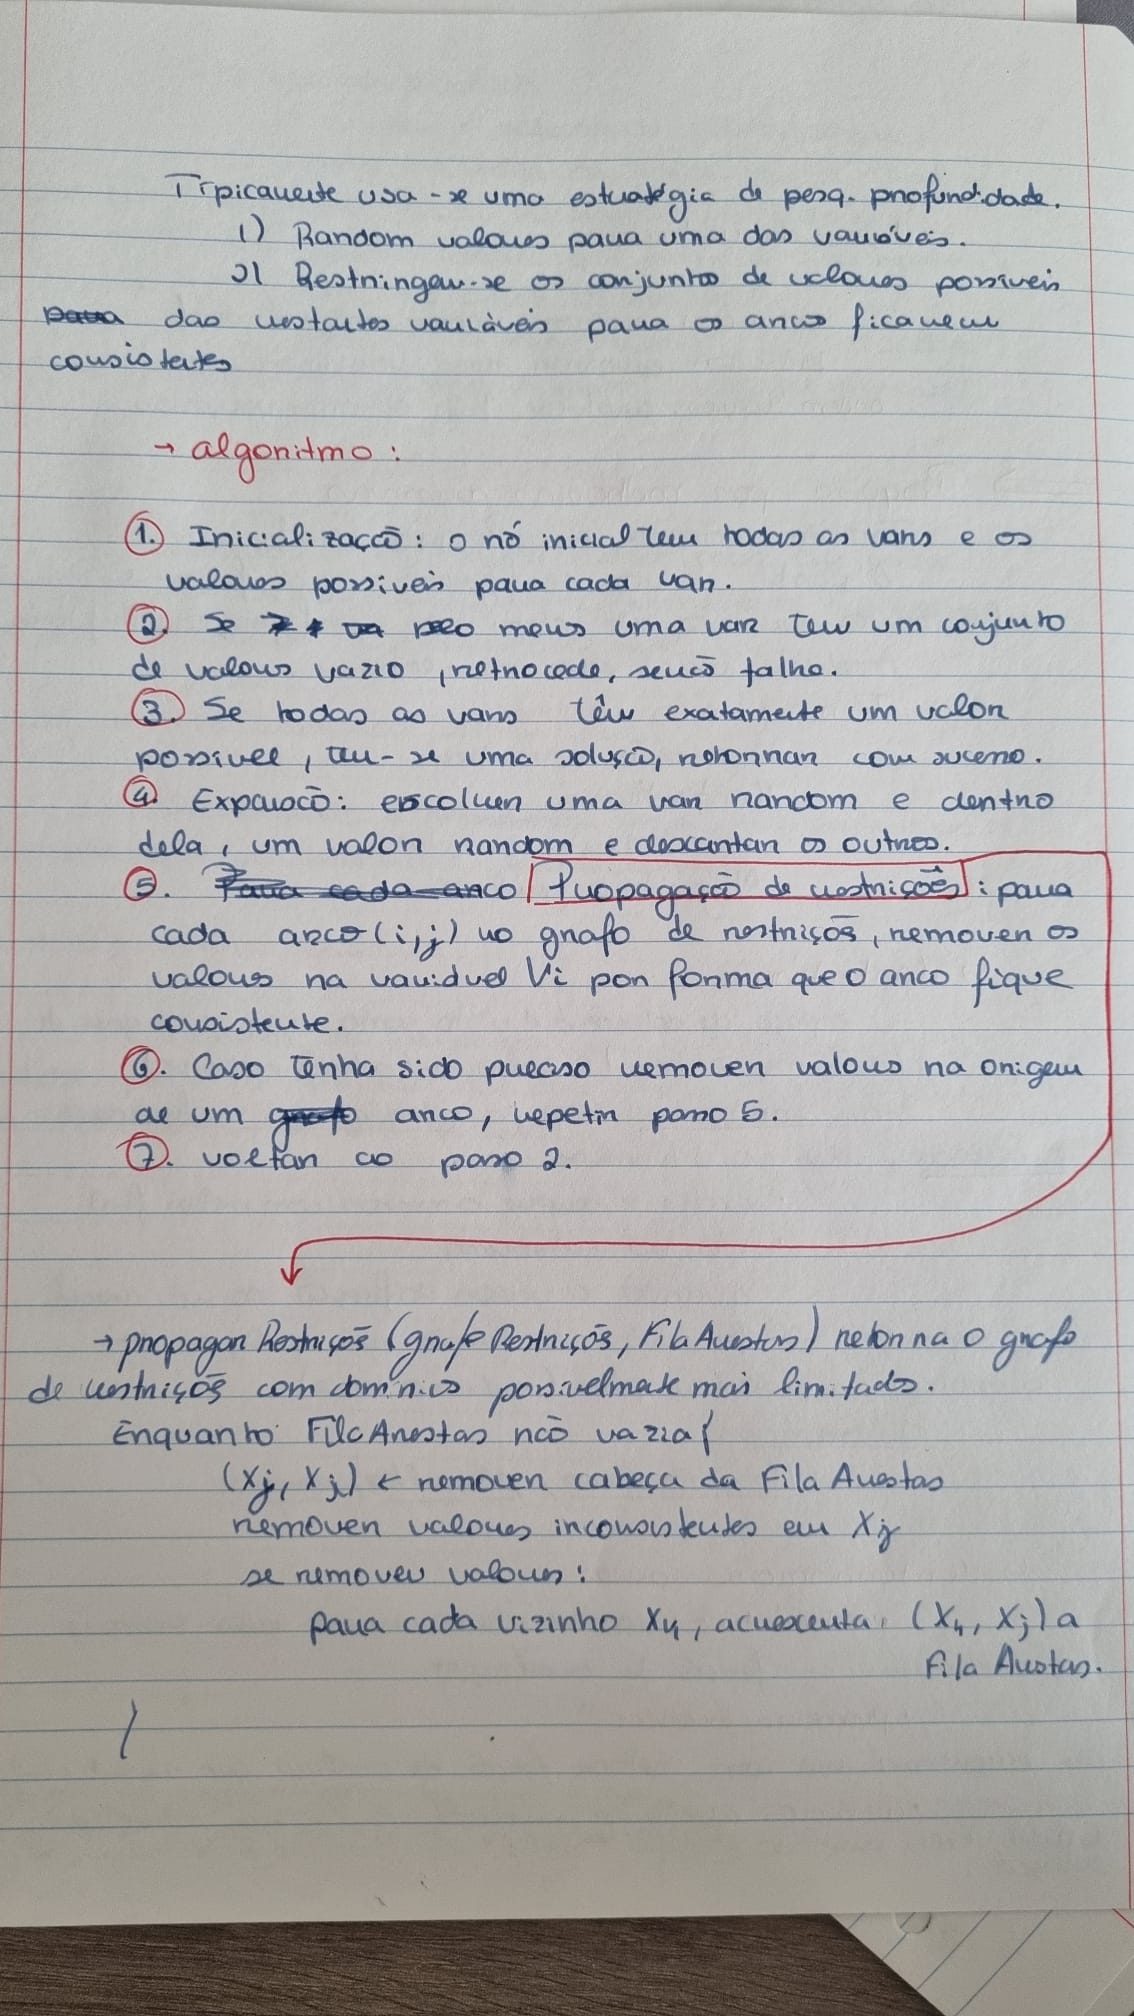 Tipicamente usa-se uma estratégia de pesq. profundidade.
1) Random valores para uma das variáveis.
2) Restringem-se os conjuntos de valores possíveis
para das restantes variáveis para os arcos ficarem
consistentes
→ algoritmo:
1. Inicialização: o nó inicial tem todas as vars e os
valores possíveis para cada var.
2. Se pelo menos uma var tem um conjunto
de valores vazio, retrocede, senão falha.
3. Se todas as vars têm exatamente um valor
possível, tem-se uma solução, retornar com sucesso.
4. Expansão: escolher uma var random e dentro
dela, um valor random e descartar os outros.
5. Para cada arco Propagação de restrições: para
cada arco (i,j) no grafo de restrições, remover os
valores na variável Vi por forma que o arco fique
consistente.
6. Caso tenha sido preciso remover valores na origem
de um grafo arco, repetir passo 5.
7. voltar ao passo 2.
→ propagar Restrições (grafo Restrições, Fila Arestas) retorna o grafo
de restrições com domínios possivelmente mais limitados.
Enquanto Fila Arestas não vazia {
(Xj, Xi) ← remover cabeça da Fila Arestas
remover valores inconsistentes em Xj
se removeu valores:
para cada vizinho Xk, acrescenta (Xk, Xj) a
Fila Arestas.
}